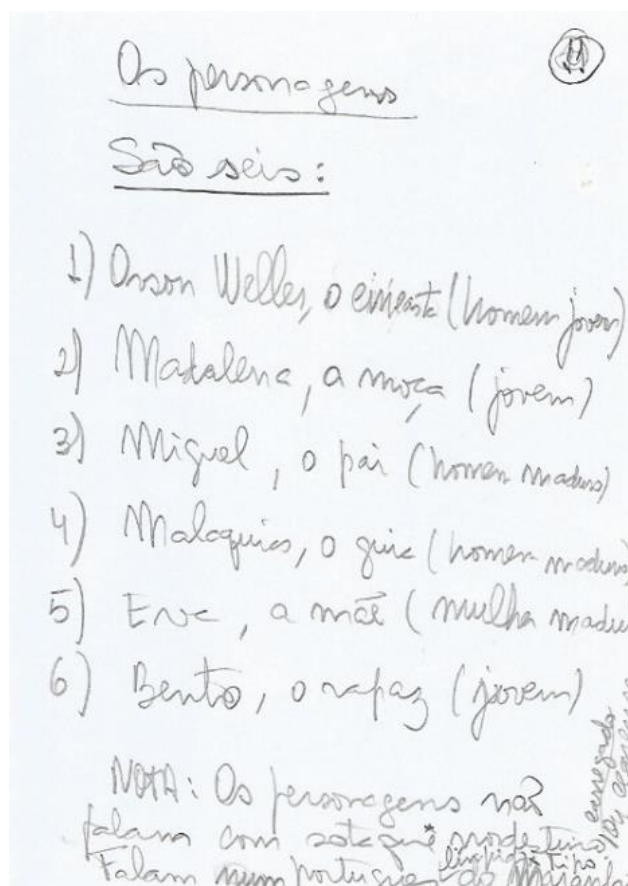 Os personagens
São seis:
1) Orson Welles, o cineasta (homem jovem)
2) Madalena, a moça (jovem)
3) Miguel, o pai (homem maduro)
4) Malaquias, o guia (homem maduro)
5) Eva, a mãe (mulher madu
6) Bento, o rapaz (jovem)
NOTA: Os personagens não
falam com sotaque* nordestino
Falam num português do